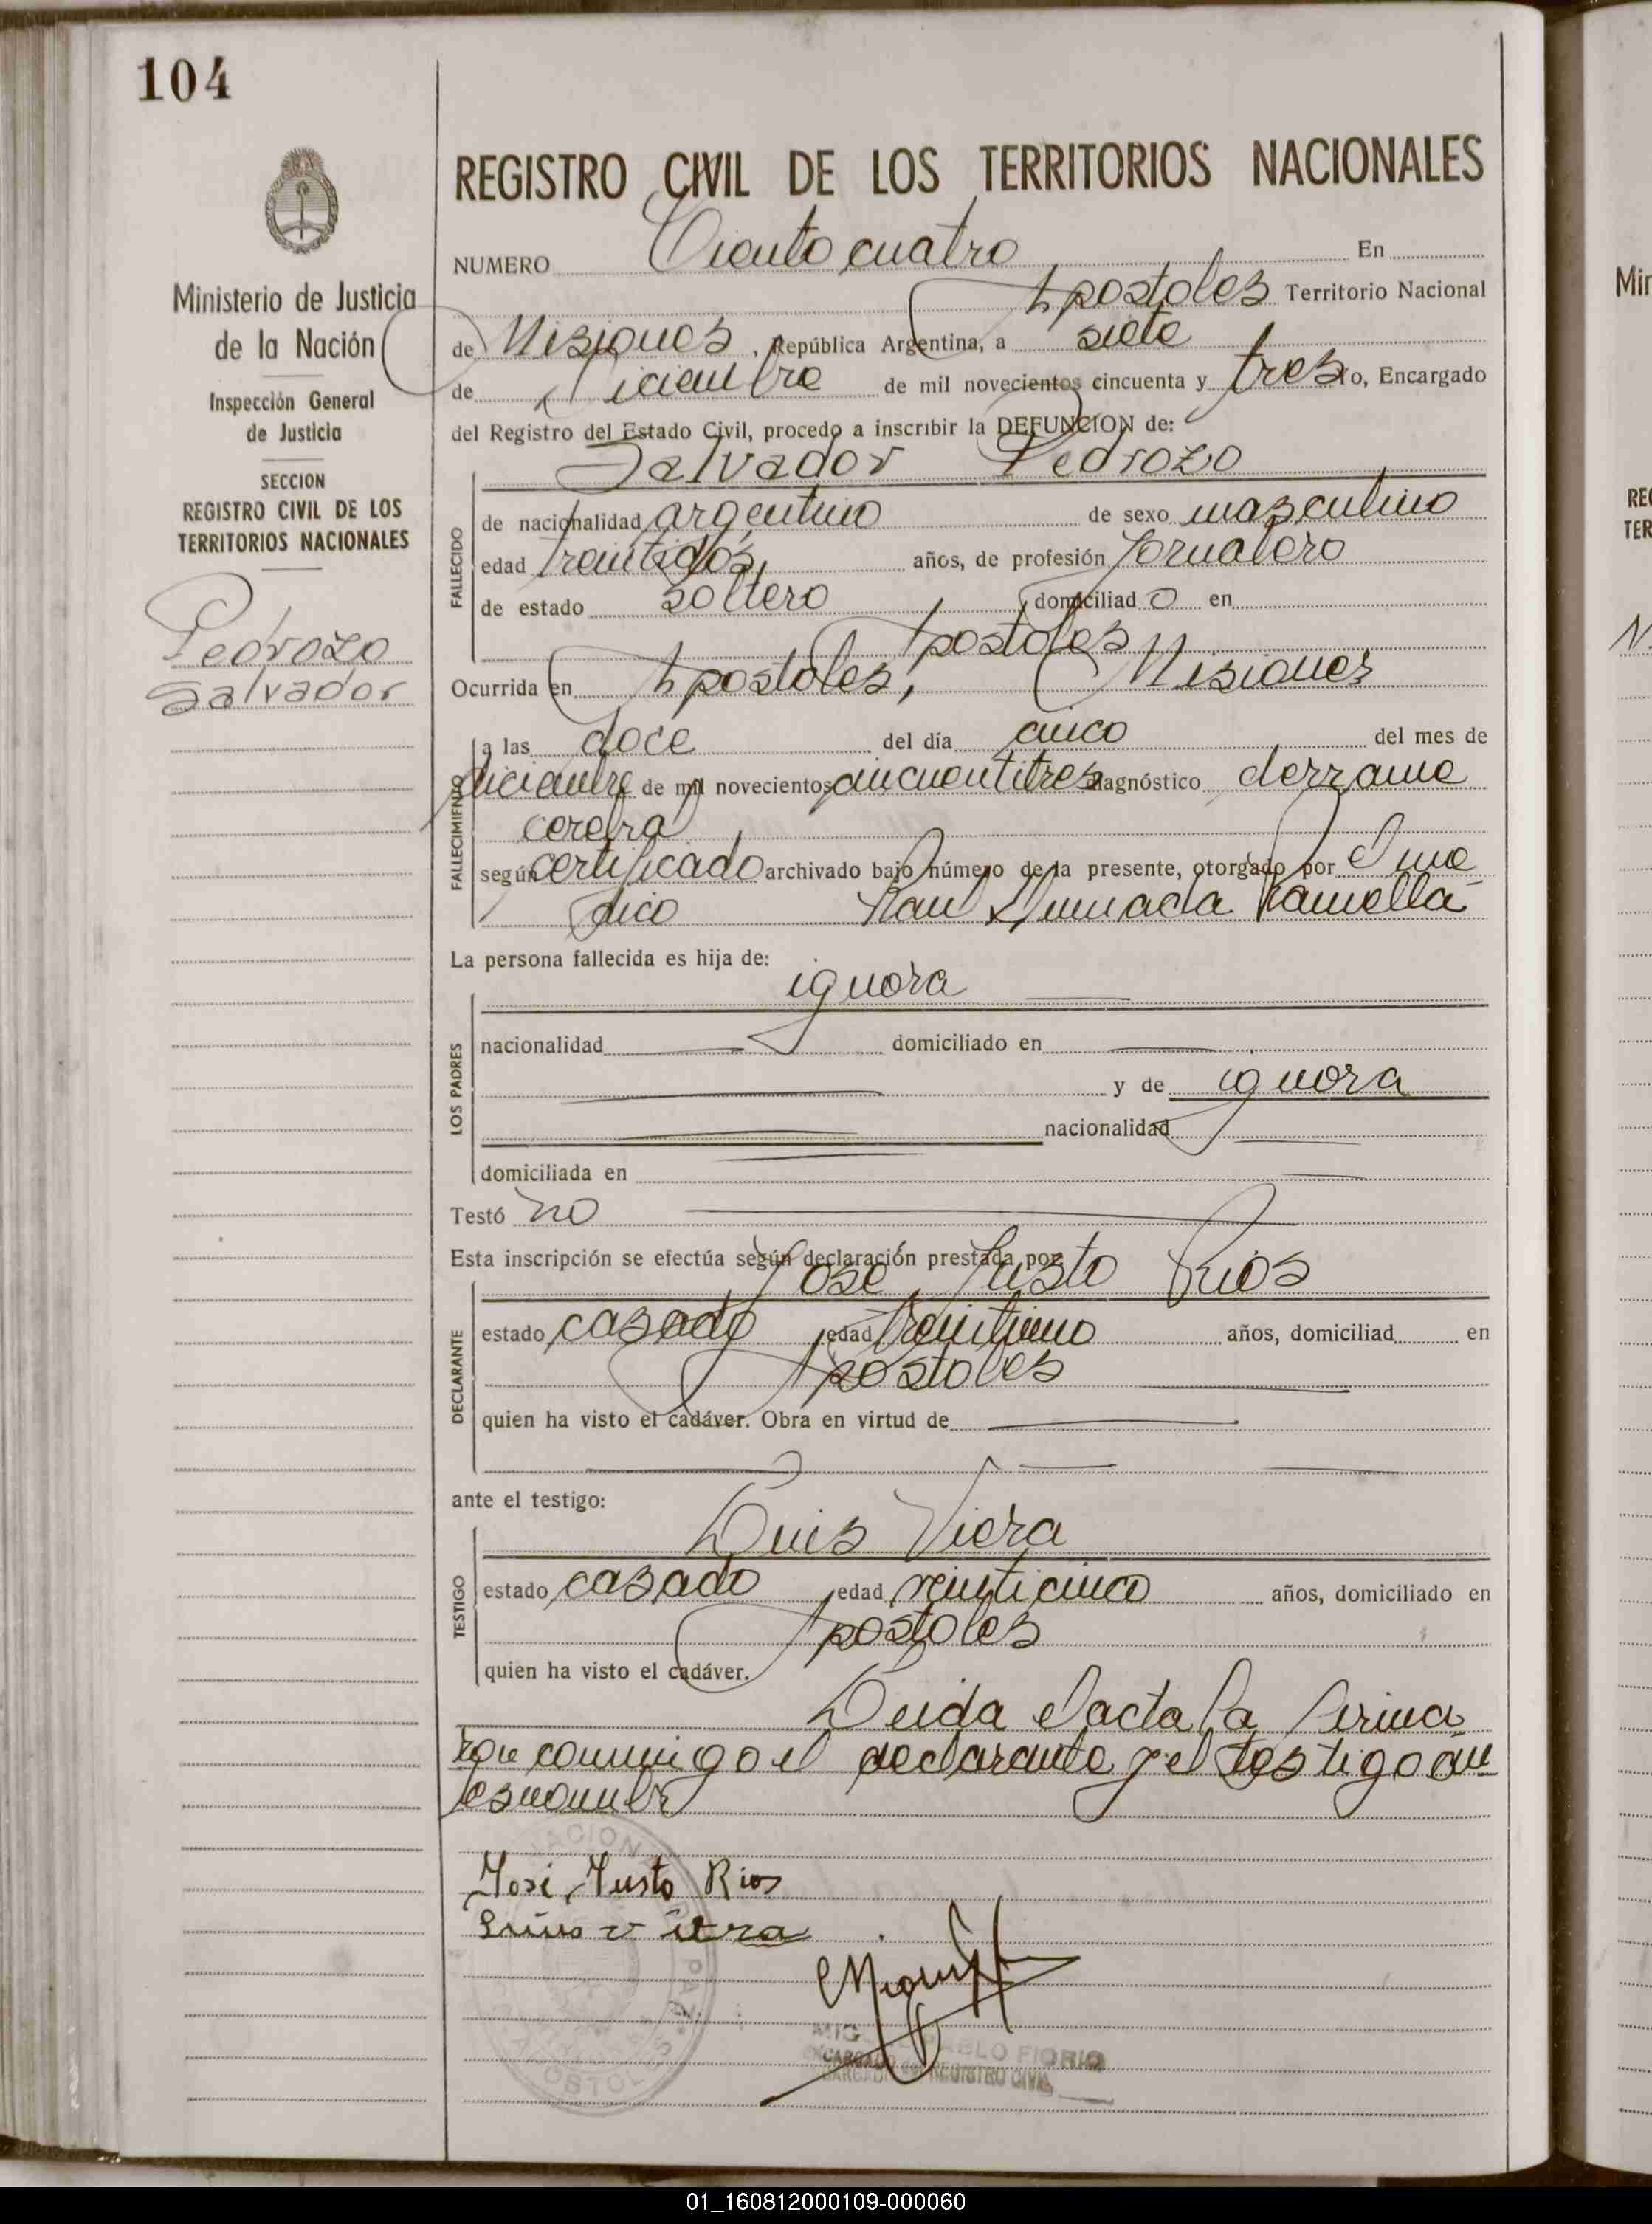 104
REGISTRO CIVIL DE LOS TERRITORIOS NACIONALES
NUMERO Ciento cuatro En
Apostoles Territorio Nacional
de Misiones, República Argentina, a siete
de Diciembre de mil novecientos cincuenta y tres Yo, Encargado
del Registro del Estado Civil, procedo a inscribir la DEFUNCION de:
Salvador Pedrozo
FALLECIDO
de nacionalidad argentino de sexo masculino
edad treintidós, años, de profesión Jornalero
de estado soltero domiciliado en
Apostoles
Ocurrida en Apostoles, Misiones
FALLECIMIENTO
a las doce del día cinco del mes de
diciembre de mil novecientos cincuentitres diagnóstico derrame
cerebral
según certificado archivado bajo número de la presente, otorgado por el mé
dico Raul Ramella
La persona fallecida es hija de:
ignora
LOS PADRES
nacionalidad domiciliado en
y de ignora
nacionalidad
domiciliada en
Testó no
Esta inscripción se efectúa según declaración prestada por:
José Justo Rios
DECLARANTE
estado casado edad treintiuno años, domiciliad en
Apostoles
quien ha visto el cadáver. Obra en virtud de
ante el testigo:
Luis Viera
TESTIGO
estado casado edad veinticinco años, domiciliado en
Apostoles
quien ha visto el cadáver.
Leida el acta la firma
ron conmigo el declarante y el testigo an
tesnombr
José Justo Rios
Luis viera
PABLO FIORIO
ENCARGADO DEL REGISTRO CIVIL
Ministerio de Justicia
de la Nación
Inspección General
de Justicia
SECCION
REGISTRO CIVIL DE LOS
TERRITORIOS NACIONALES
Pedrozo
Salvador
01_160812000109-000060